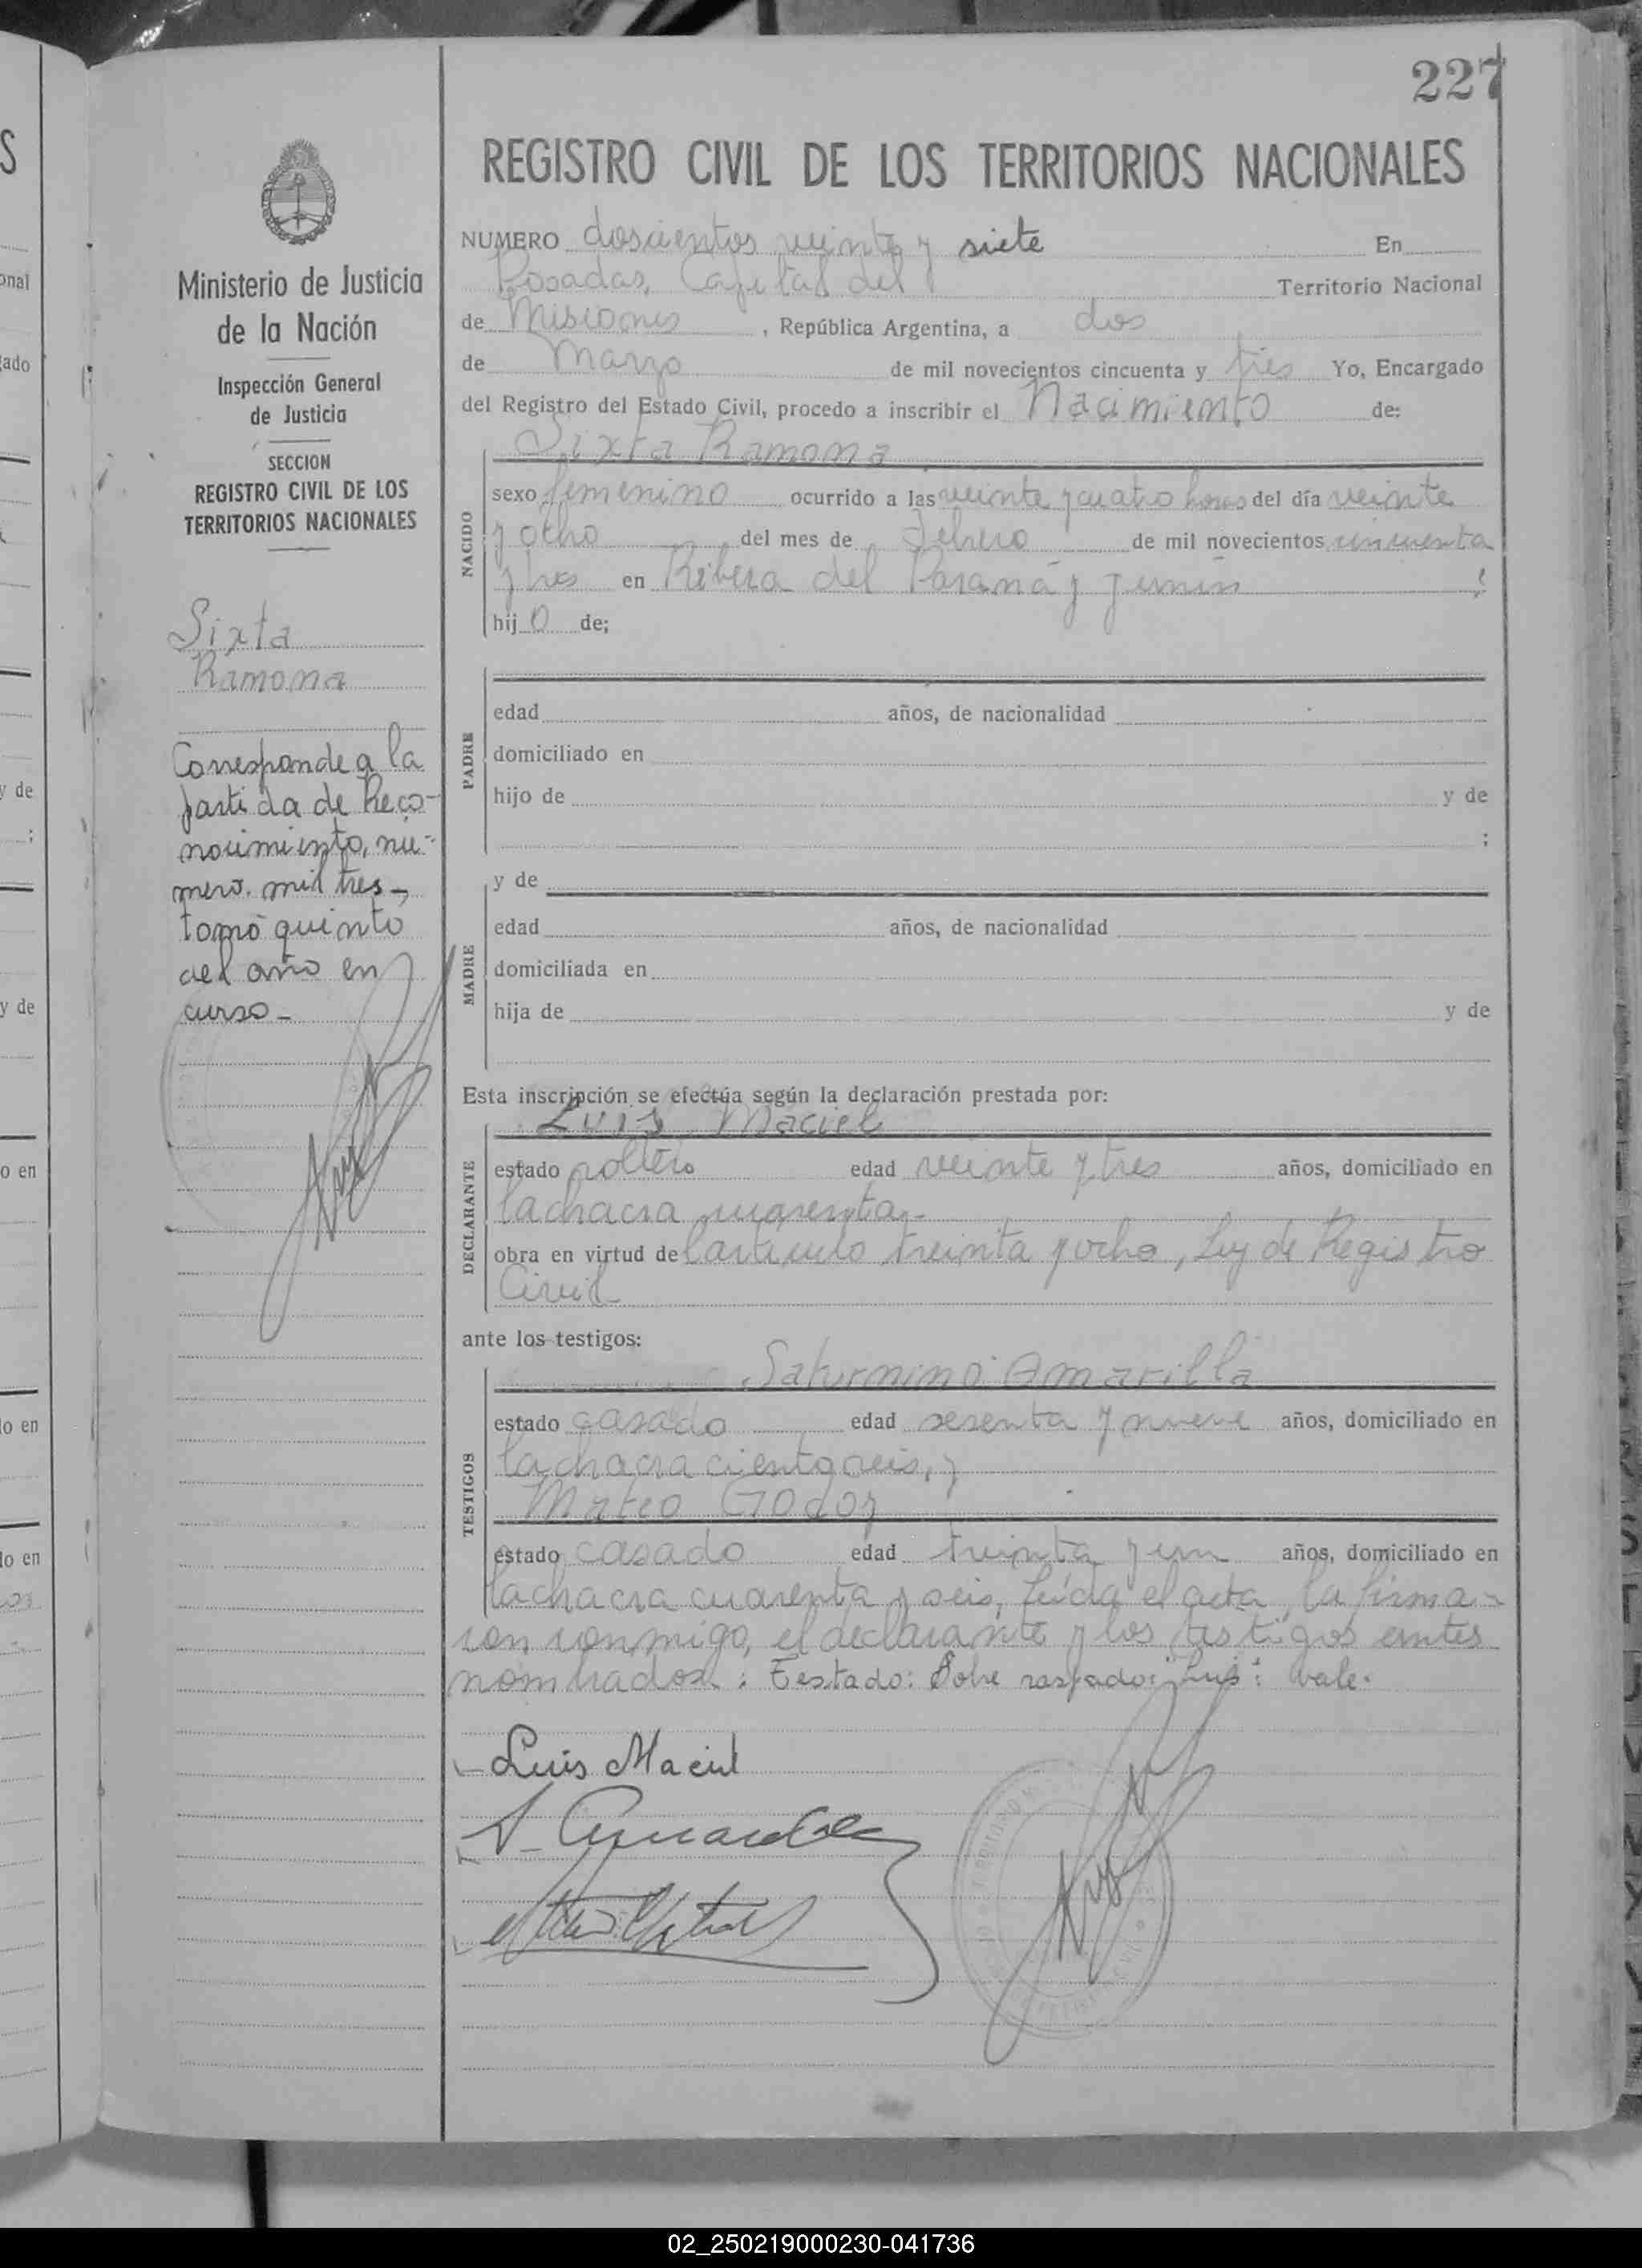 227
REGISTRO CIVIL DE LOS TERRITORIOS NACIONALES
Ministerio de Justicia
de la Nación
Inspección General
de Justicia
SECCION
REGISTRO CIVIL DE LOS
TERRITORIOS NACIONALES
Sixta
Ramona
Corresponde a la
partida de Reco-
nocimiento, nú-
mero mil tres-
tomo quinto
del año en
curso-
NUMERO doscientos veinte y siete En
Posadas, Capital del Territorio Nacional
de Misiones, República Argentina, a dos
de Marzo de mil novecientos cincuenta y tres Yo, Encargado
del Registro del Estado Civil, procedo a inscribir el Nacimiento de:
Sixta Ramona
NACIDO
sexo femenino ocurrido a las veinte y cuatro horas del día veinte
y ocho del mes de Febrero de mil novecientos cincuenta
y tres en Ribera del Paraná y Junín ;
hij o de;
PADRE
edad años, de nacionalidad
domiciliado en
hijo de y de
;
MADRE
y de
edad años, de nacionalidad
domiciliada en
hija de y de
Esta inscripción se efectúa según la declaración prestada por:
Luis Maciel
DECLARANTE
estado soltero edad veinte y tres años, domiciliado en
la chacra cuarenta-
obra en virtud del artículo treinta y ocho, Ley de Registro
Civil
ante los testigos:
Saturnino Amarilla
TESTIGOS
estado casado edad sesenta y nueve años, domiciliado en
la chacra ciento seis, y
Mateo Godoy
estado casado edad treinta y un años, domiciliado en
la chacra cuarenta y seis, Leída el acta, la firma-
ron conmigo, el declarante y los testigos antes
nombrados.: Testado: Sobre raspado: "Luis": Vale.
Luis Maciel
02_250219000230-041736